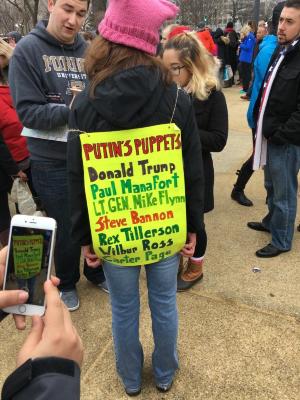 PUTIN'S PUPPETS
Donald Trump
Paul Manafort
LT. GEN. Mike Flynn
Steve Bannon
Rex Tillerson
Wilbur Ross
Carter Page